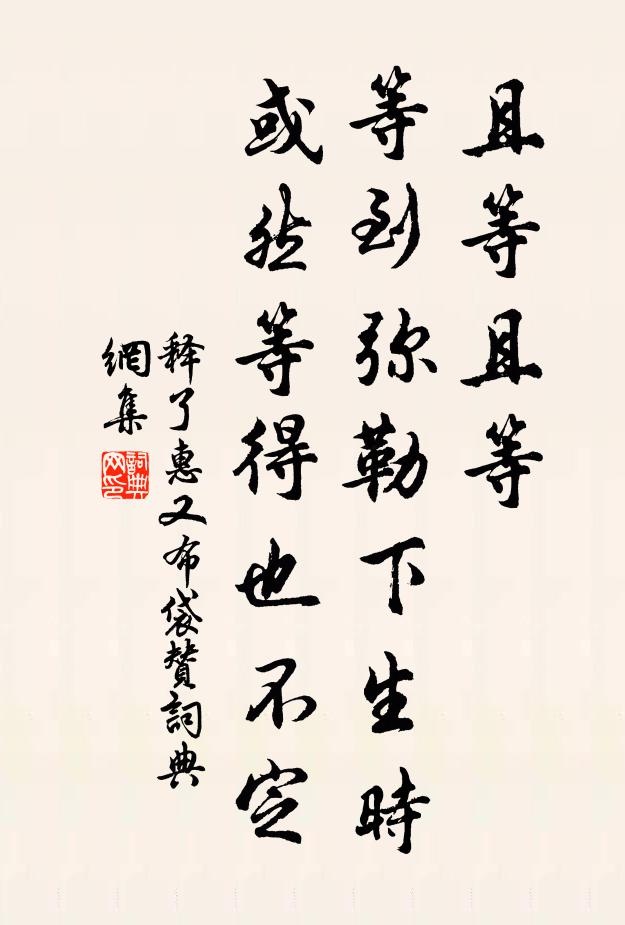 且等且等
等到弥勒下生時
或然等得也不定
释了惠又布袋赞詞典
網集
詞典網印